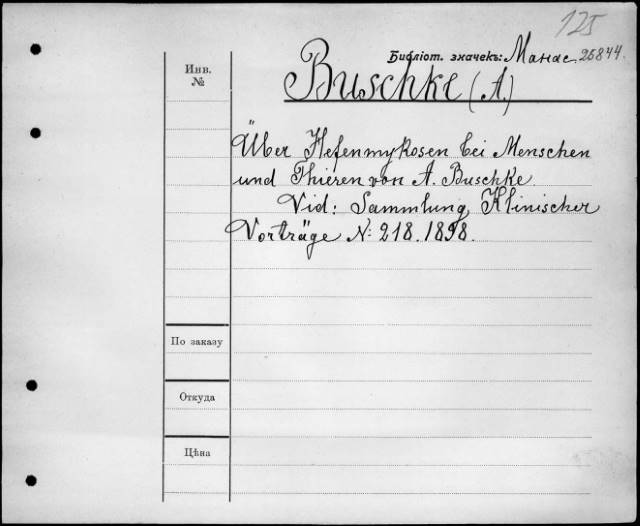 125
Библіот. значекъ: Манас. 25844.
Инв.
№
Buschke (A.)
Über Hefenmykosen bei Menschen
und Thieren von A. Buschke
Vid: Sammlung Klinischer
Vorträge N: 218. 1898.
По заказу
Откуда
Цѣна